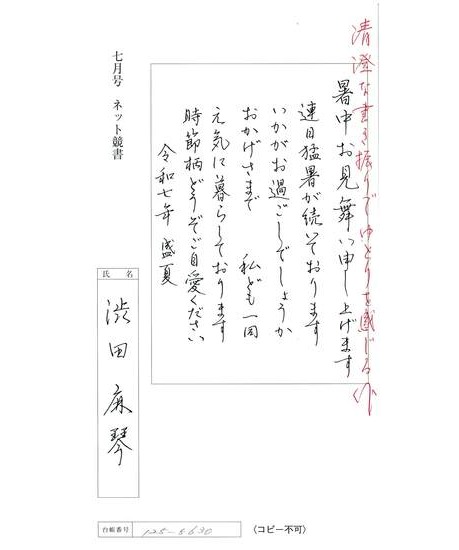 清澄な書き振りでゆとりを感じる作
暑中お見舞い申し上げます
連日猛暑が続いております
いかがお過ごしでしょうか
おかげさまで 私ども一同
元気に暮らしております
時節柄どうぞご自愛ください
令和七年 盛夏
七月号 ネット競書
氏名
渋田 麻琴
台帳番号 125-5630
(コピー不可)